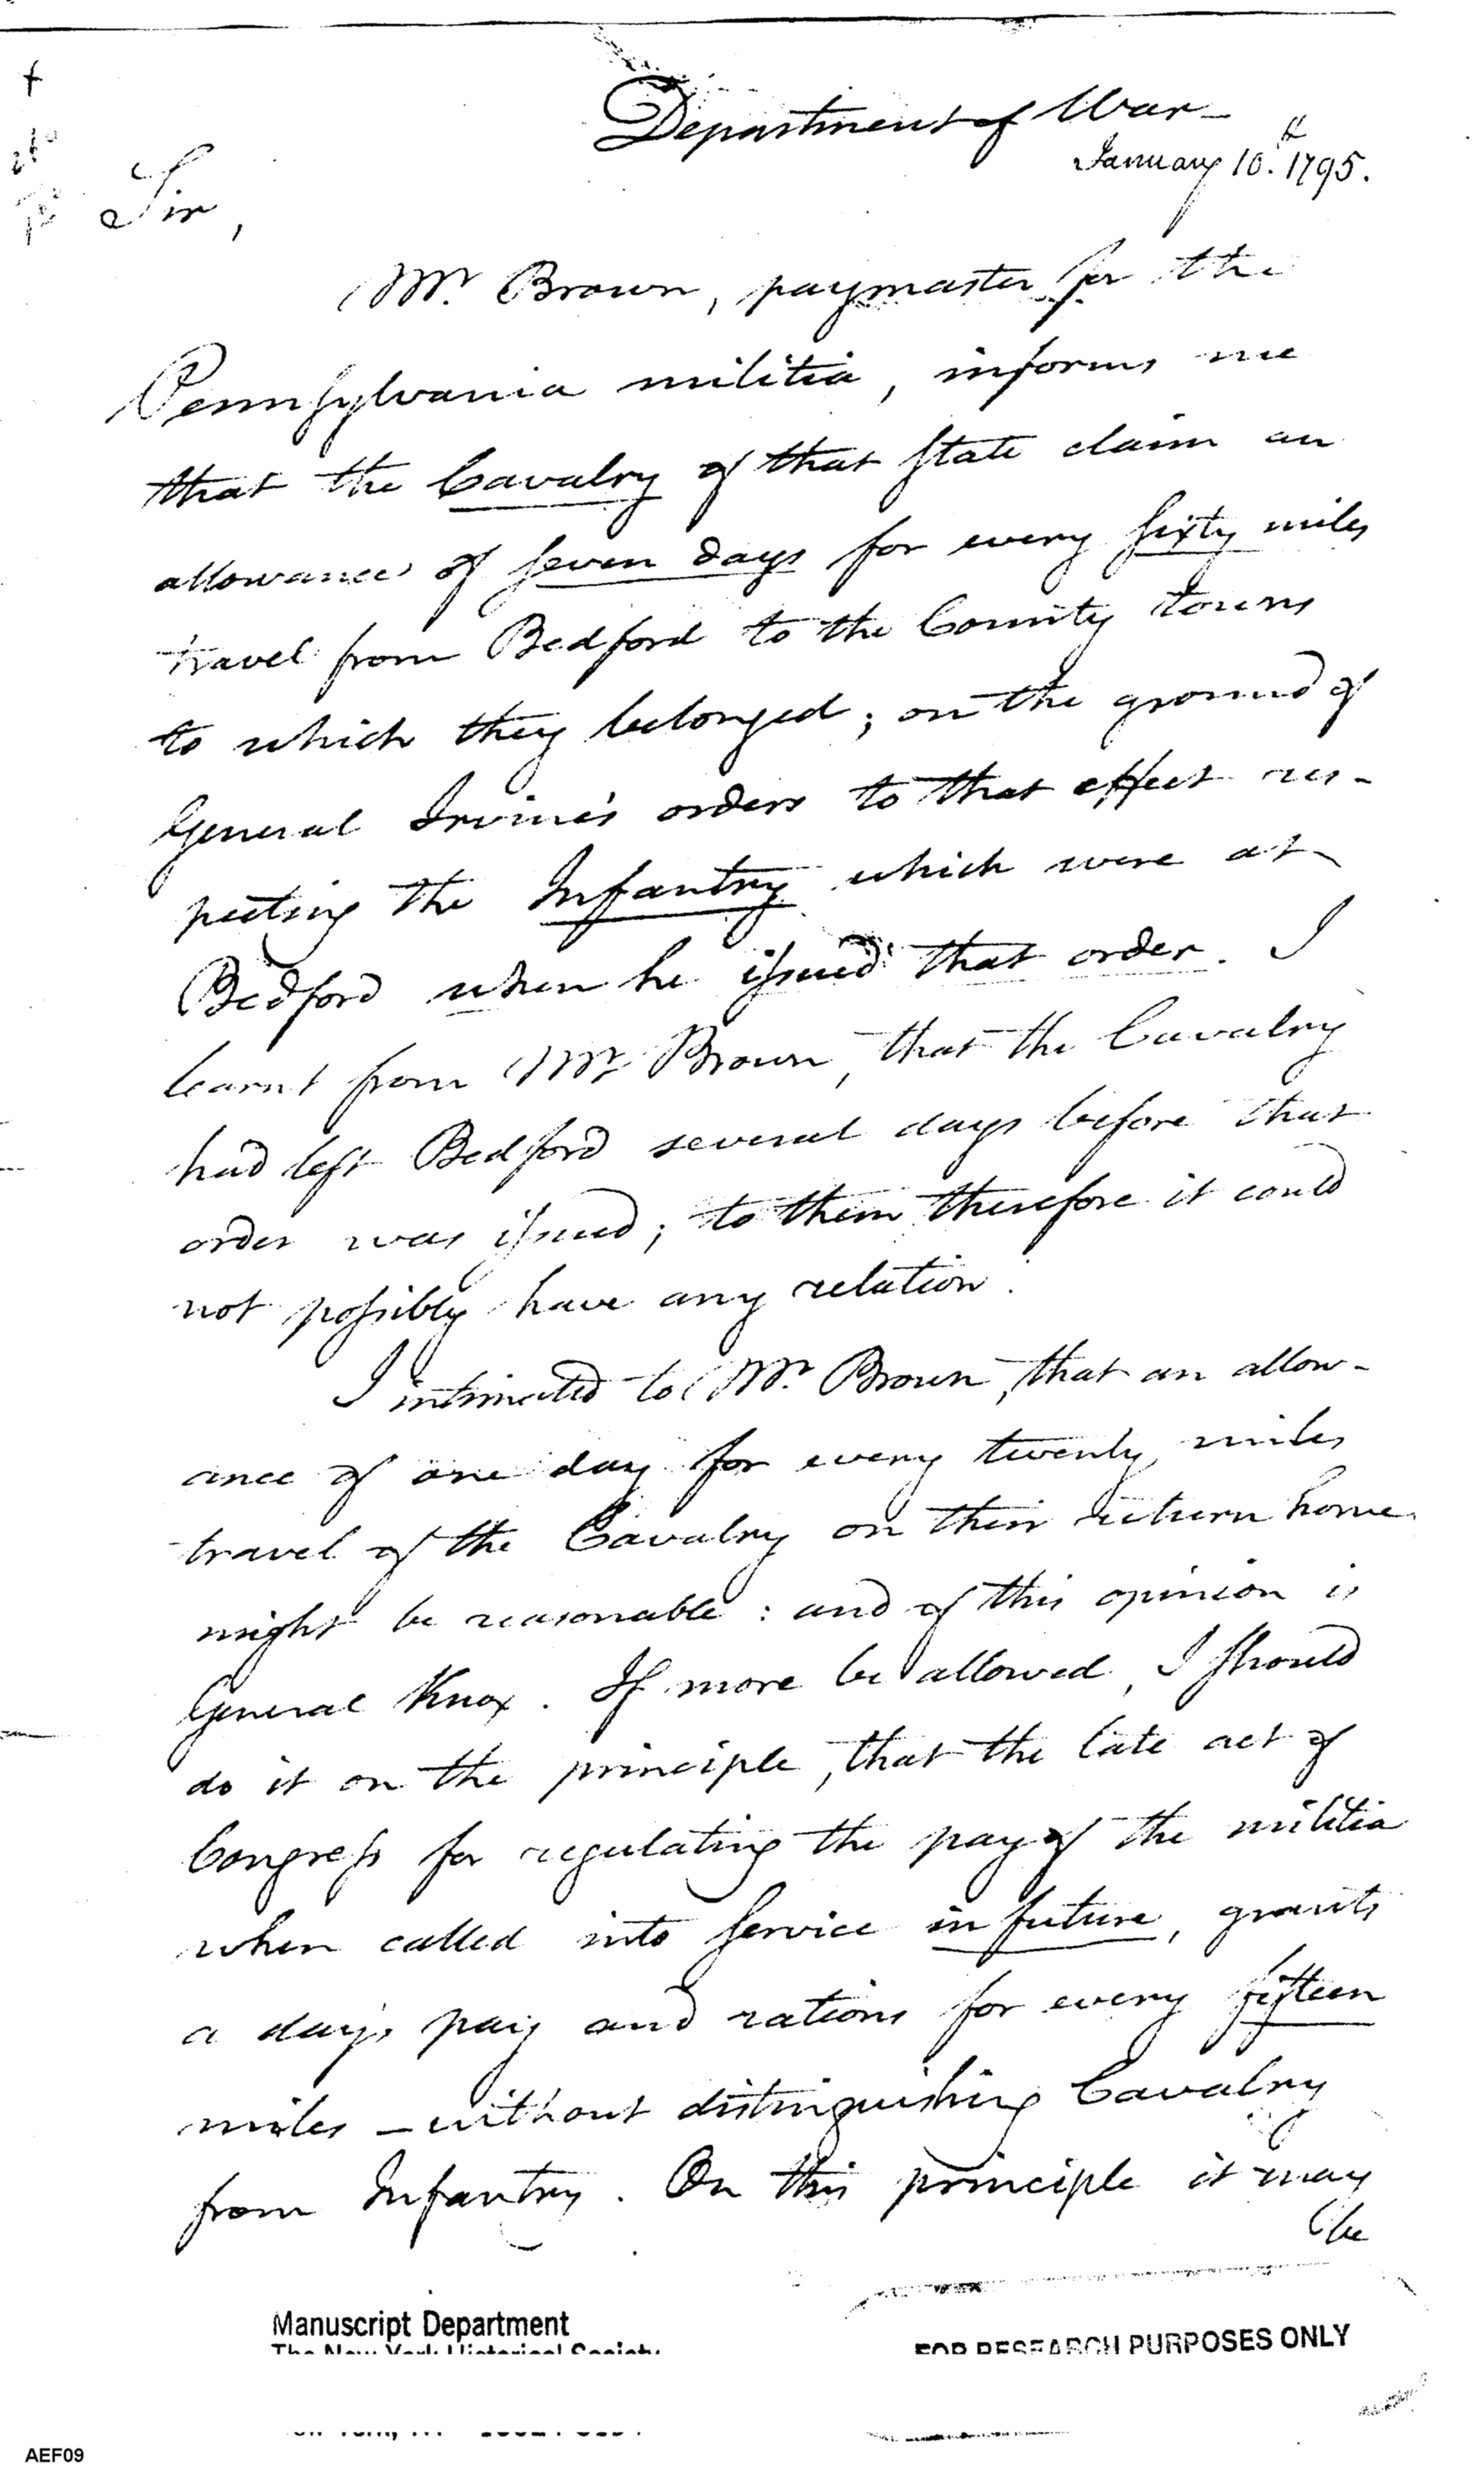 Department of War
January 10.th 1795.
Sir,
Mr. Brown, paymaster for the
Pennsylvania militia, informs me
that the Cavalry of that State claim an
allowance of seven days for every sixty miles
travel from Bedford to the County towns
to which they belonged; on the ground of
General Irvine's orders to that effect res-
pecting the Infantry which were at
Bedford when he issued that order. I
learnt from Mr. Brown, that the Cavalry
had left Bedford several days before that
order was issued; to them therefore it could
not possibly have any relation.
I intimated to Mr. Brown, that an allow-
ance of one day for every twenty miles
travel of the Cavalry on their return home
might be reasonable: and of this opinion is
General Knox. If more be allowed, I should
do it on the principle, that the late act of
Congress for regulating the pay of the militia
when called into service in future, grants
a day's pay and rations for every fifteen
miles _ without distinguishing Cavalry
from Infantry. On this principle it may
be
Manuscript Department
The New York Historical Society
FOR RESEARCH PURPOSES ONLY
AEF09